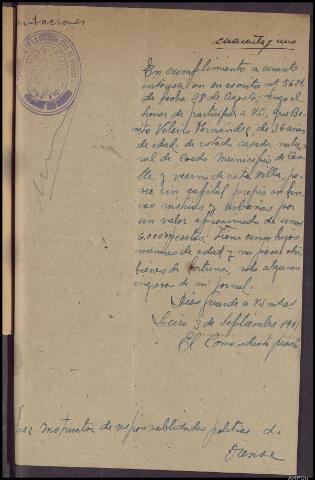 cuarenta y uno
En cumplimiento a cuanto
interesa en su escrito nº 5626
de fecha 28 de Agosto; tengo el
honor de participar a VS. que Be
nito Fernandez, de 36 años
de edad de estado casado, natu
ral de Municipio de Cen
lle y vecino de esta villa, po
see un capital propio en fin
cas rusticas y urbanas por
un valor aproximado de unas
6.000 pesetas; Tiene cinco hijos
menores de edad y no posee otros
bienes de fortuna, solo algunos
ingresos de su jornal.
Dios guarde a VS m. as.
Leiro 3 de Septiembre 1941
El Comandante puesto
Juez Instructor de responsabilidades politicas de
Orense